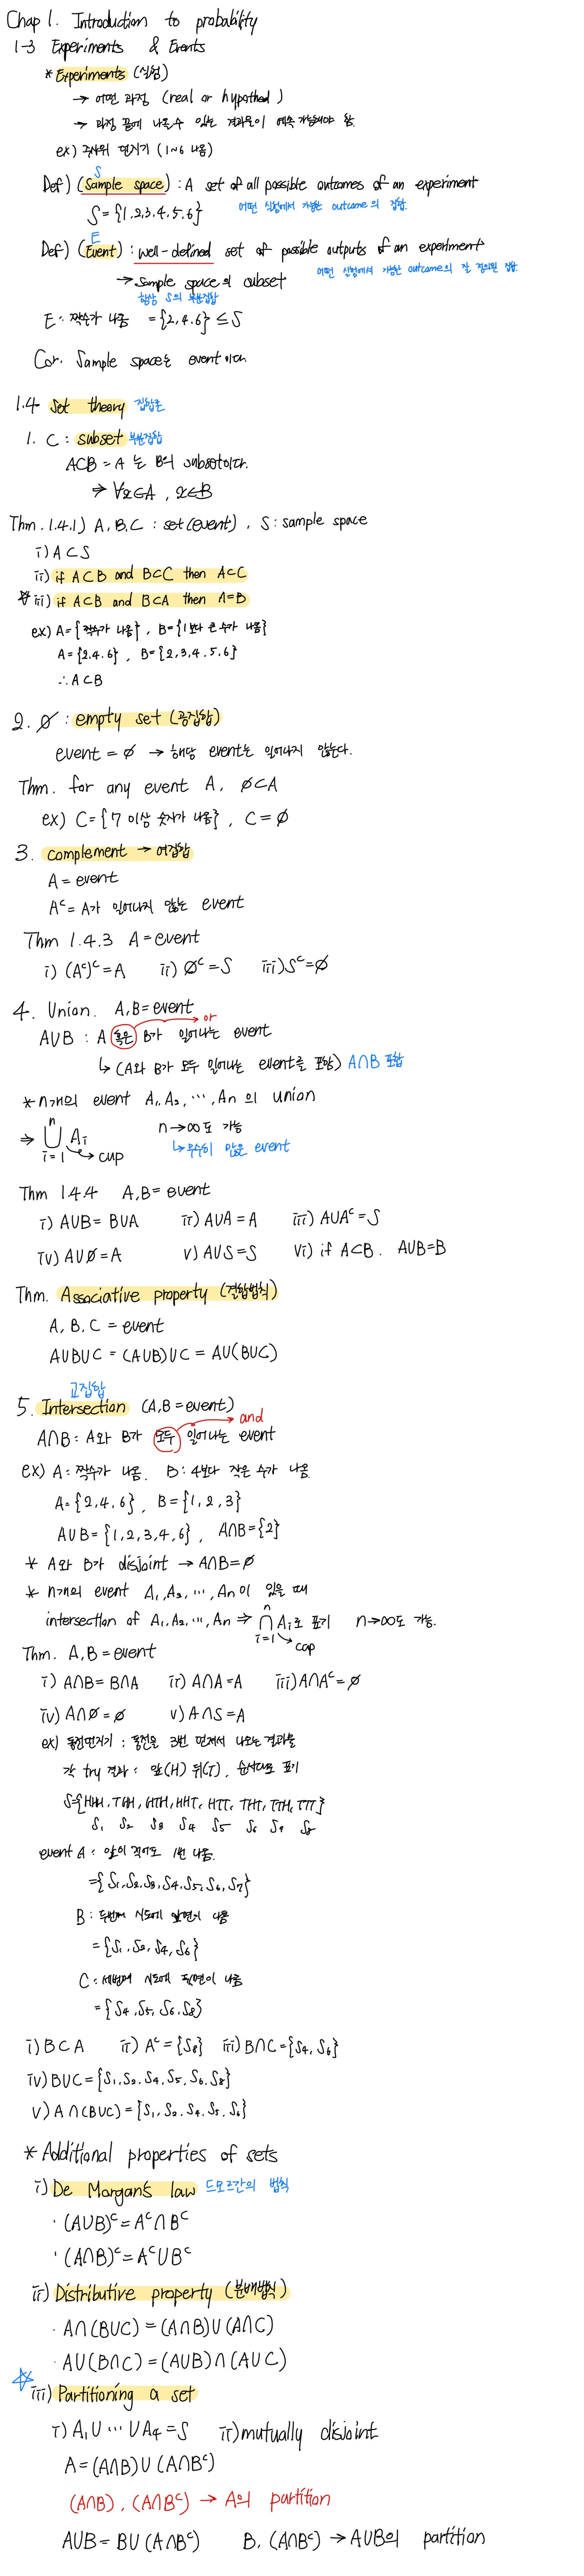 Chap 1. Introduction to probability
1-3 Experiments & Events
* Experiments (실험)
→ 어떤 과정 (real or hypothed)
→ 과정 끝에 나올 수 있는 결과물이 예측 가능해야 함.
ex) 주사위 던지기 (1~6 나옴)
S
Def) (Sample space) : A set of all possible outcomes of an experiment
S = {1, 2, 3, 4, 5, 6} 어떤 실험에서 가능한 outcome의 집합.
E
Def) (Event) : well-defined set of possible outputs of an experiment
→ Sample space의 subset 어떤 실험에서 가능한 outcome의 잘 정의된 집합.
항상 S의 부분집합
E : 짝수가 나옴 = {2, 4, 6} ≤ S
Cor. Sample space는 event이다.
1.4 Set theory 집합론
1. ⊂ : subset 부분집합
A⊂B = A 는 B의 subset이다.
⇒ ∀x∈A , x∈B
Thm. 1.4.1) A, B, C : set (event) , S : sample space
i) A⊂S
ii) if A⊂B and B⊂C then A⊂C
☆ iii) if A⊂B and B⊂A then A=B
ex) A={짝수가 나옴} , B={1보다 큰 수가 나옴}
A={2,4,6} , B={2,3,4,5,6}
∴ A⊂B
2. ∅ : empty set (공집합)
event = ∅ → 해당 event는 일어나지 않는다.
Thm. for any event A, ∅⊂A
ex) C={7 이상 숫자가 나옴} , C=∅
3. complement → 여집합
A = event
Aᶜ = A가 일어나지 않는 event
Thm 1.4.3 A = event
i) (Aᶜ)ᶜ=A ii) ∅ᶜ=S iii) Sᶜ=∅
4. Union. A,B = event
A∪B : A 혹은 B가 일어나는 event or
↳ (A와 B가 모두 일어나는 event를 포함) A∩B 포함
* n개의 event A₁, A₂, ⋯, An 의 union
⇒ n ⋃ i=1 Ai → cup n→∞도 가능
↳ 무수히 많은 event
Thm 1.4.4 A,B = event
i) A∪B = B∪A ii) A∪A = A iii) A∪Aᶜ = S
iv) A∪∅ = A v) A∪S = S vi) if A⊂B. A∪B=B
Thm. Associative property (결합법칙)
A, B, C = event
A∪B∪C = (A∪B)∪C = A∪(B∪C)
교집합
5. Intersection (A,B = event)
A∩B : A와 B가 모두 일어나는 event and
ex) A : 짝수가 나옴. B : 4보다 작은 수가 나옴.
A={2,4,6} , B={1,2,3}
A∪B={1,2,3,4,6} , A∩B={2}
* A와 B가 disjoint → A∩B=∅
* n개의 event A₁, A₂, ⋯, An이 있을 때
intersection of A₁, A₂, ⋯, An ⇒ n ⋂ i=1 Ai로 표기 n→∞도 가능.
→ cap
Thm. A,B = event
i) A∩B = B∩A ii) A∩A=A iii) A∩Aᶜ=∅
iv) A∩∅=∅ v) A∩S=A
ex) 동전던지기 : 동전을 3번 던져서 나오는 결과물
각 try 결과 : 앞(H) 뒤(T). 순서대로 표기
S={HHH, THH, HTH, HHT, HTT, THT, TTH, TTT}
S₁ S₂ S₃ S₄ S₅ S₆ S₇ S₈
event A : 앞이 적어도 1번 나옴.
={S₁, S₂, S₃, S₄, S₅, S₆, S₇}
B : 두번째 시도에 앞면이 나옴
={S₁, S₂, S₄, S₆}
C : 세번째 시도에 뒷면이 나옴
={S₄, S₅, S₆, S₈}
i) B⊂A ii) Aᶜ={S₈} iii) B∩C={S₄, S₆}
iv) B∪C={S₁, S₂, S₄, S₅, S₆, S₈}
v) A∩(B∪C)={S₁, S₂, S₄, S₅, S₆}
* Additional properties of sets
i) De Morgan's law 드모르간의 법칙
· (A∪B)ᶜ=Aᶜ∩Bᶜ
· (A∩B)ᶜ=Aᶜ∪Bᶜ
ii) Distributive property (분배법칙)
· A∩(B∪C)=(A∩B)∪(A∩C)
· A∪(B∩C)=(A∪B)∩(A∪C)
☆ iii) Partitioning a set
i) A₁∪⋯∪A₄=S ii) mutually disjoint
A=(A∩B)∪(A∩Bᶜ)
(A∩B), (A∩Bᶜ) → A의 partition
A∪B=B∪(A∩Bᶜ) B, (A∩Bᶜ) → A∪B의 partition